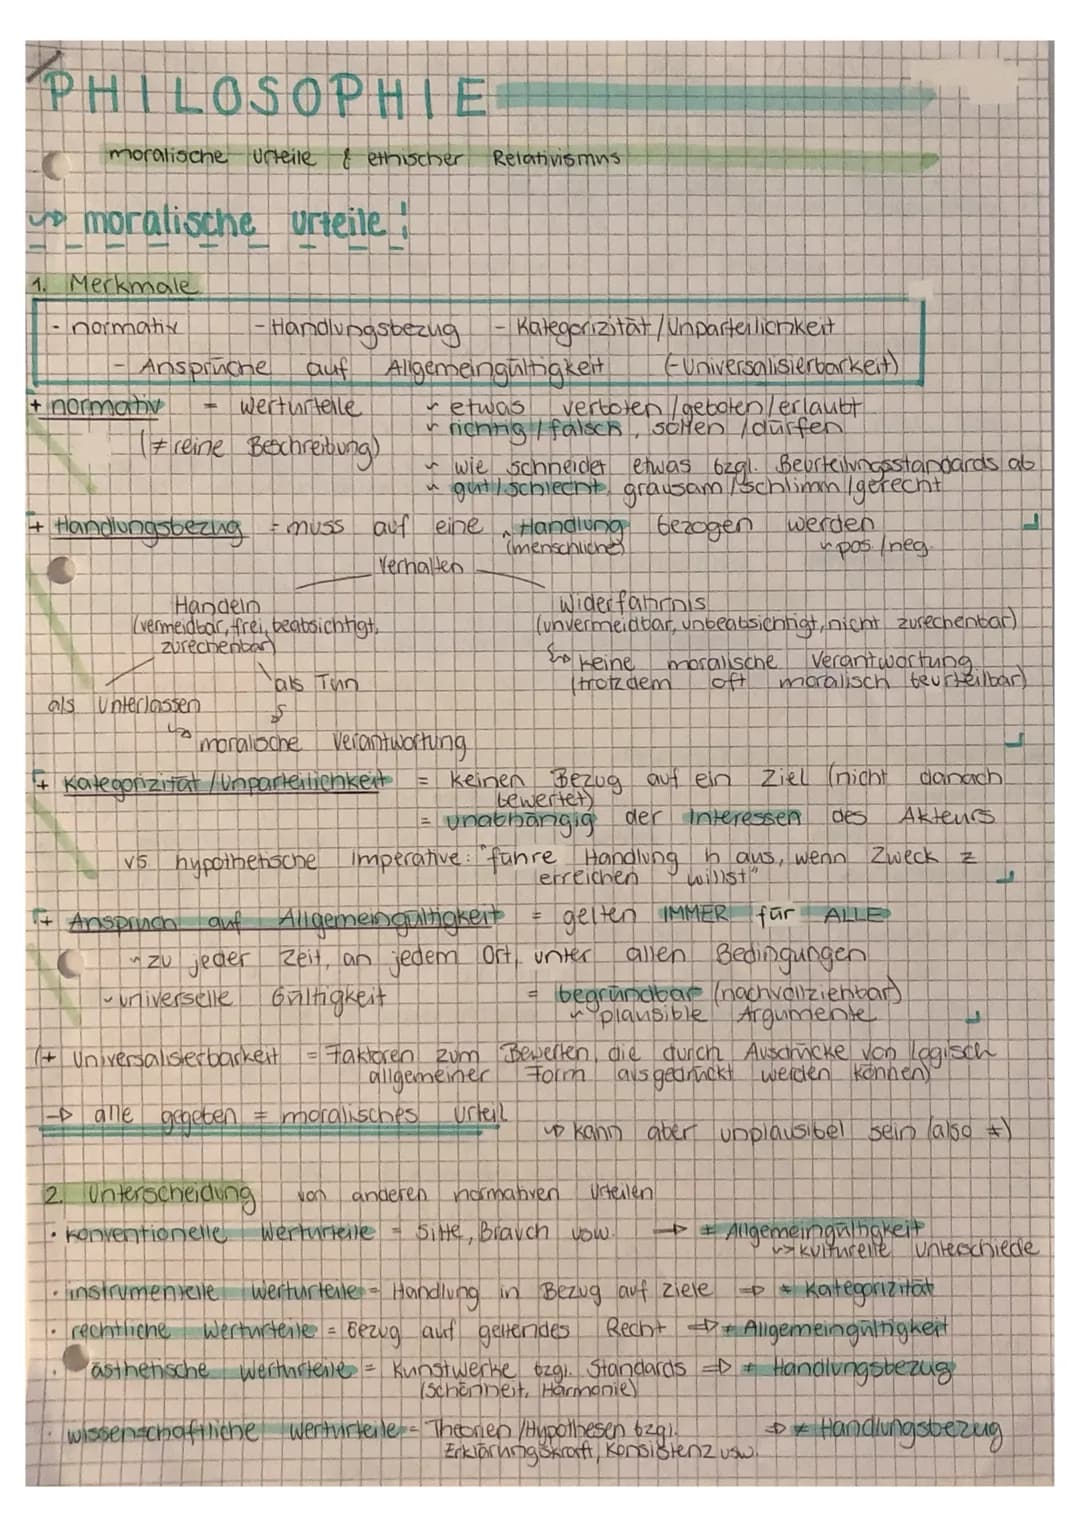 PHILOSOPHIE
moralische Urteile & ethischer Relativismus
moralische Urteile!
1. Merkmale
- normativ - Handlungsbezug - Kategorizität/Unparteilichkeit
- Ansprüche auf Allgemeingültigkeit (-Universalisierbarkeit)
+ normativ = Werturteile etwas verboten/geboten/erlaubt
richtig/falsch, sollen/dürfen
(≠ reine Beschreibung)
wie schneidet etwas bzgl. Beurteilungsstandards ab
gut/schlecht, grausam/schlimm/gerecht
+ Handlungsbezug = muss auf eine Handlung bezogen werden
(menschliche) pos./neg.
Verhalten
Handeln Widerfahrnis
(vermeidbar, frei, beabsichtigt, (unvermeidbar, unbeabsichtigt, nicht zurechenbar)
zurechenbar)
keine moralische Verantwortung
als Tun (trotzdem oft moralisch beurteilbar)
als Unterlassen
moralische Verantwortung
+ Kategorizität/Unparteilichkeit = keinen Bezug auf ein Ziel (nicht danach
bewertet)
= unabhängig der Interessen des Akteurs
vs hypothetische Imperative: "führe Handlung h aus, wenn Zweck z
erreichen willst"
+ Anspruch auf Allgemeingültigkeit = gelten IMMER für ALLE
zu jeder Zeit, an jedem Ort, unter allen Bedingungen
- universelle Gültigkeit = begründbar (nachvollziehbar)
plausible Argumente
(+ Universalisierbarkeit = Faktoren zum Bewerten, die durch Ausdrücke von logisch
allgemeiner Form ausgedrückt werden können)
→ alle gegeben = moralisches Urteil
kann aber unplausibel sein (also ≠)
2. Unterscheidung von anderen normativen Urteilen
· konventionelle Werturteile = Sitte, Brauch usw. → ≠ Allgemeingültigkeit
↳ kulturelle Unterschiede
· instrumentelle Werturteile = Handlung in Bezug auf Ziele ⇒ ≠ Kategorizität
· rechtliche Werturteile = Bezug auf geltendes Recht ⇒ ≠ Allgemeingültigkeit
· ästhetische Werturteile = Kunstwerke bzgl. Standards ⇒ ≠ Handlungsbezug
(Schönheit, Harmonie)
· wissenschaftliche Werturteile = Theorien/Hypothesen bzgl. ⇒ ≠ Handlungsbezug
Erklärungskraft, Konsistenz usw.